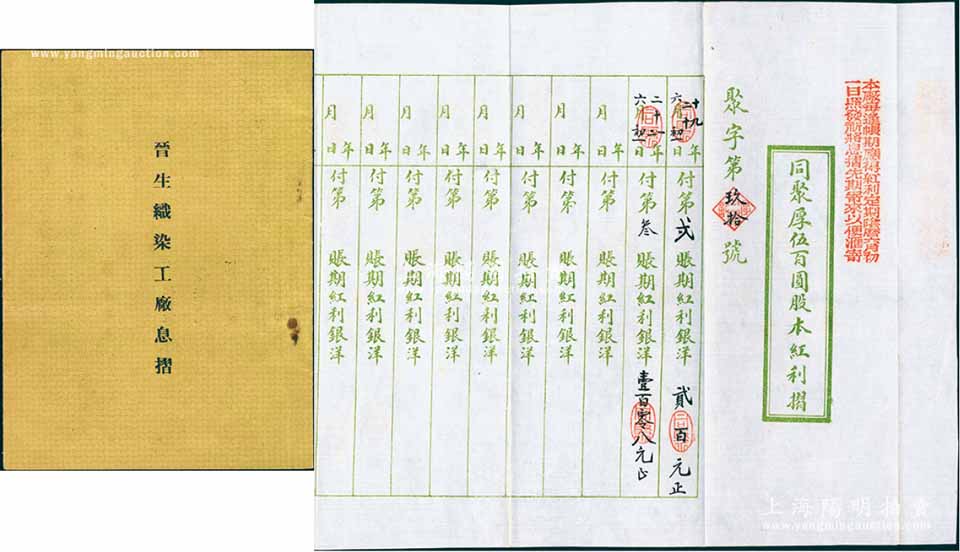 www.yangmingauction.com
晉生織染工廠息摺
本廠每逢賬期應得紅利定期陰曆六月初
一日照發
同聚厚伍百圓股本紅利摺
聚字第玖拾號
十九年六月初一日付第弍賬期紅利銀洋貳百元正
二十二年六月初一日付第叁賬期紅利銀洋壹百零八元正
年月日付第賬期紅利銀洋
年月日付第賬期紅利銀洋
年月日付第賬期紅利銀洋
年月日付第賬期紅利銀洋
年月日付第賬期紅利銀洋
年月日付第賬期紅利銀洋
年月日付第賬期紅利銀洋
上海陽明拍賣
www.yangmingauction.com